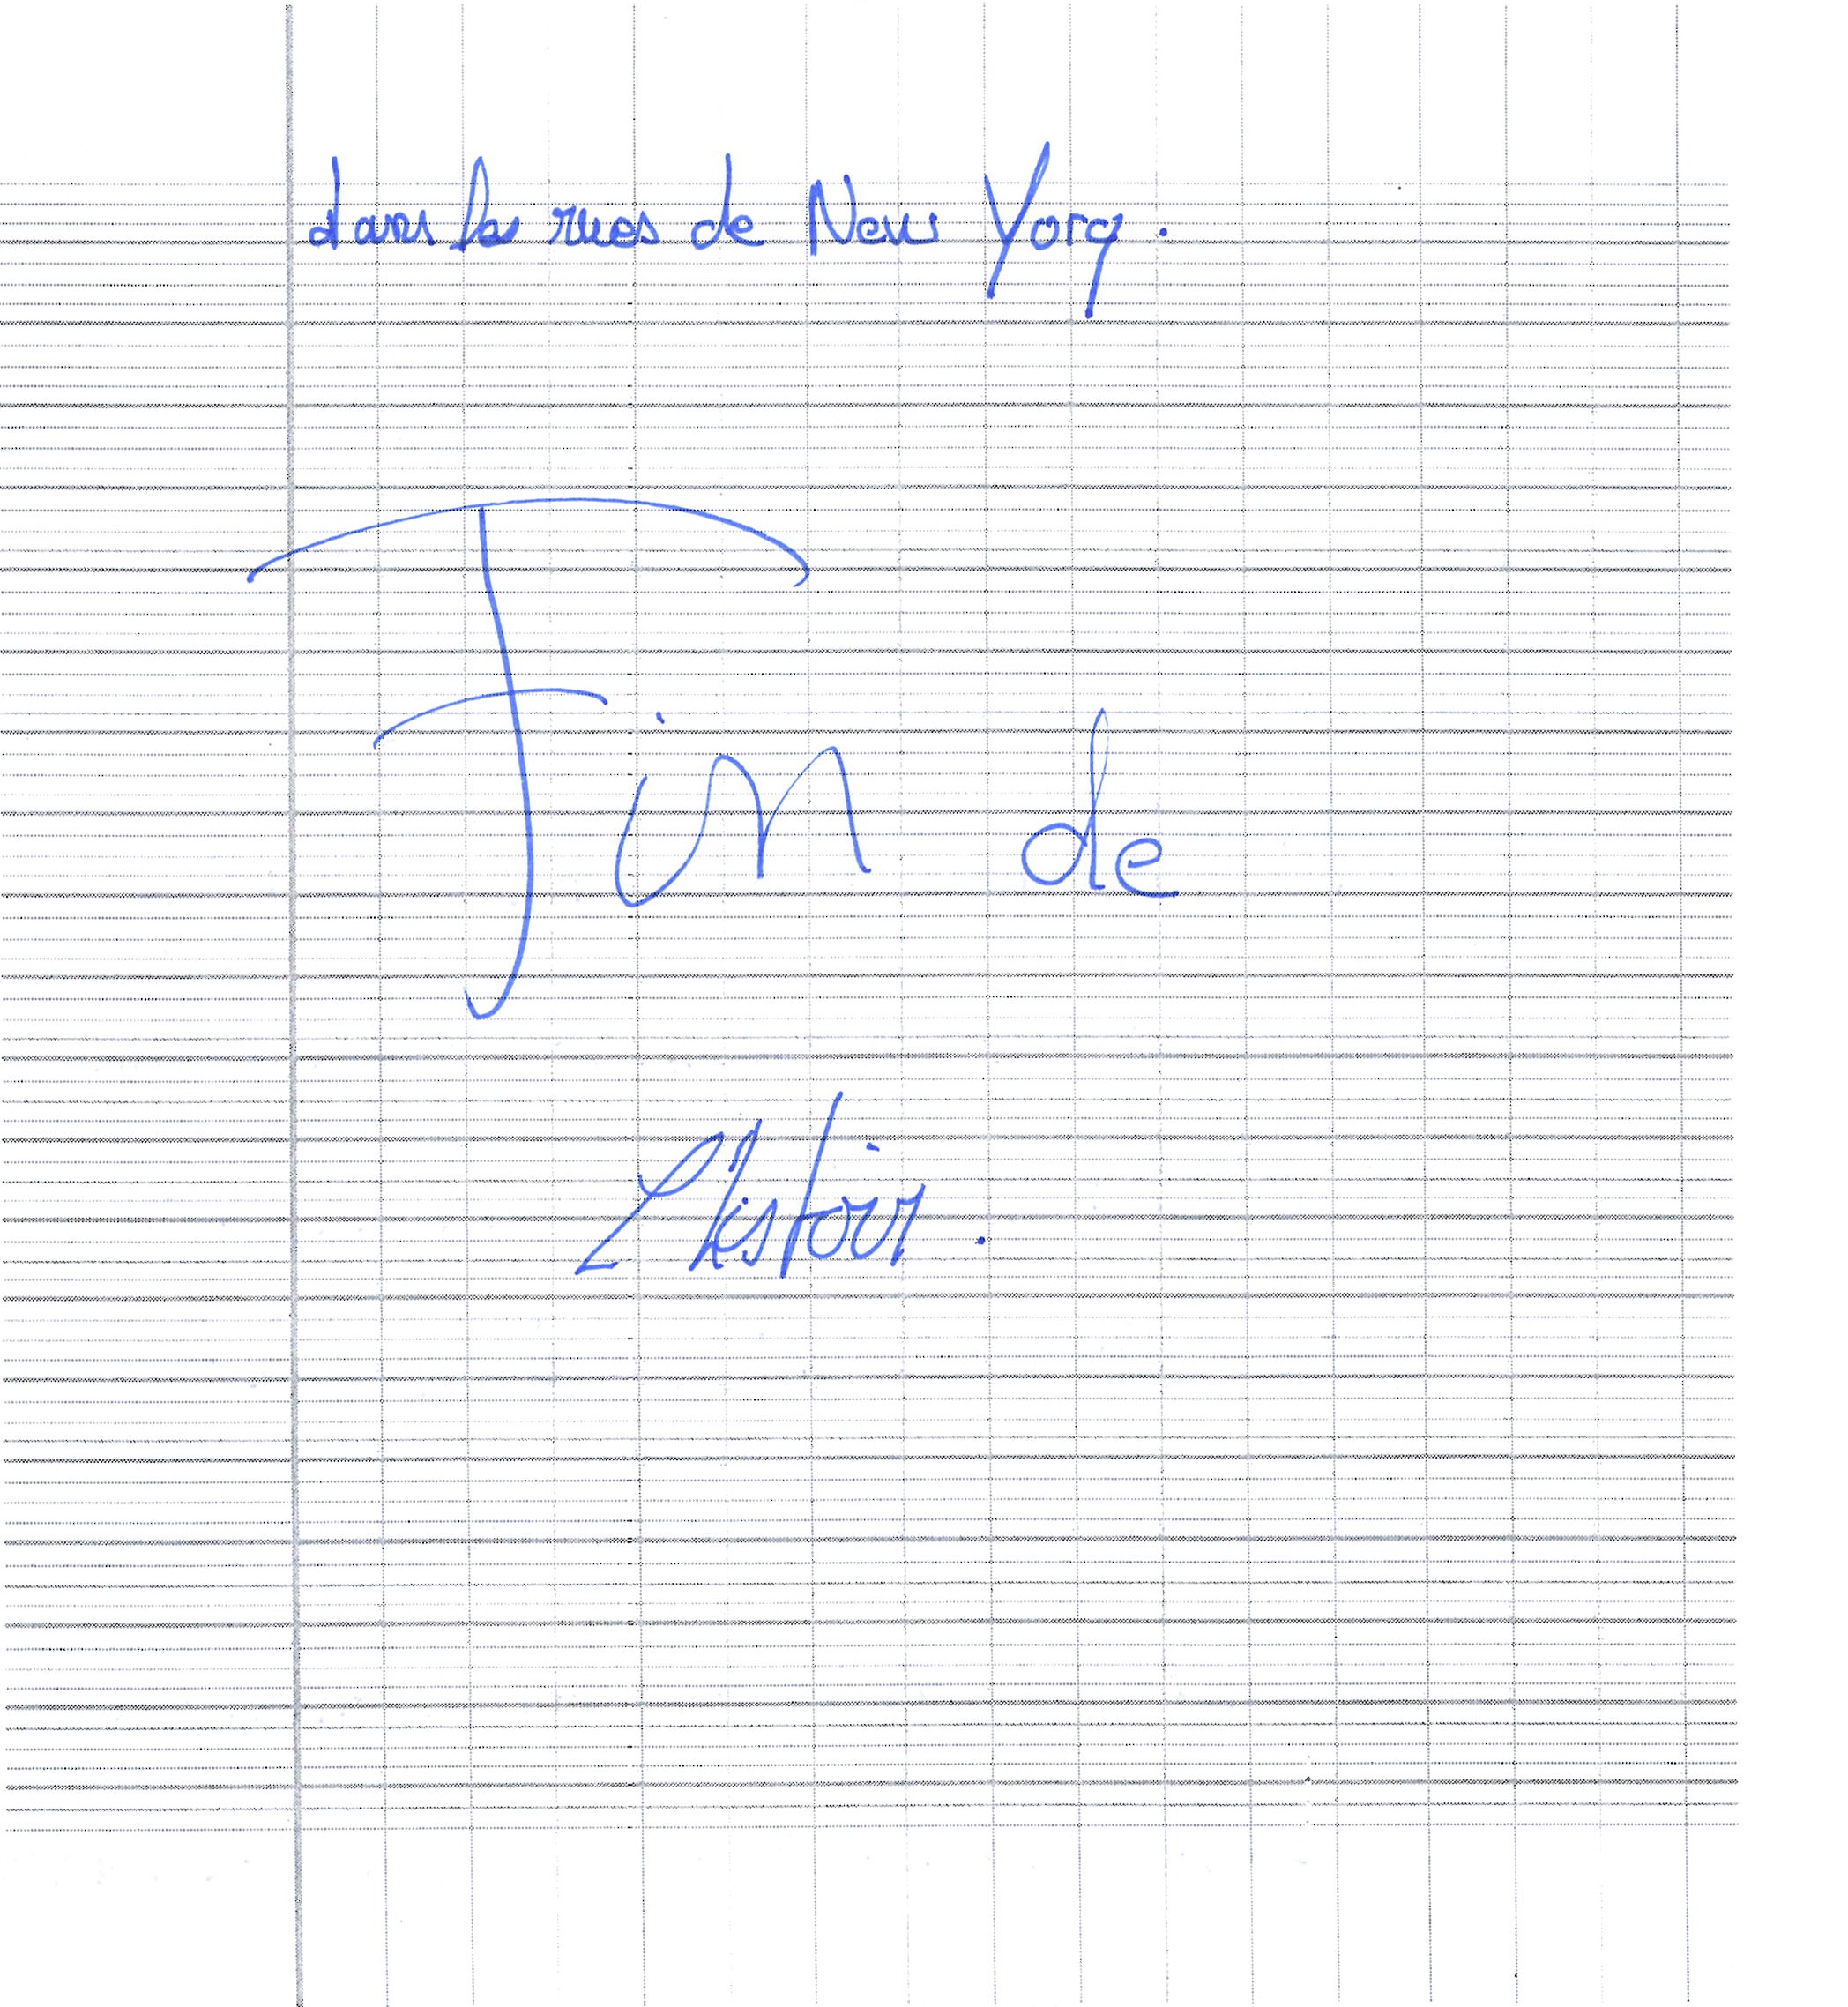 dans les rues de New Yorq.
Fin de
L'histoir.